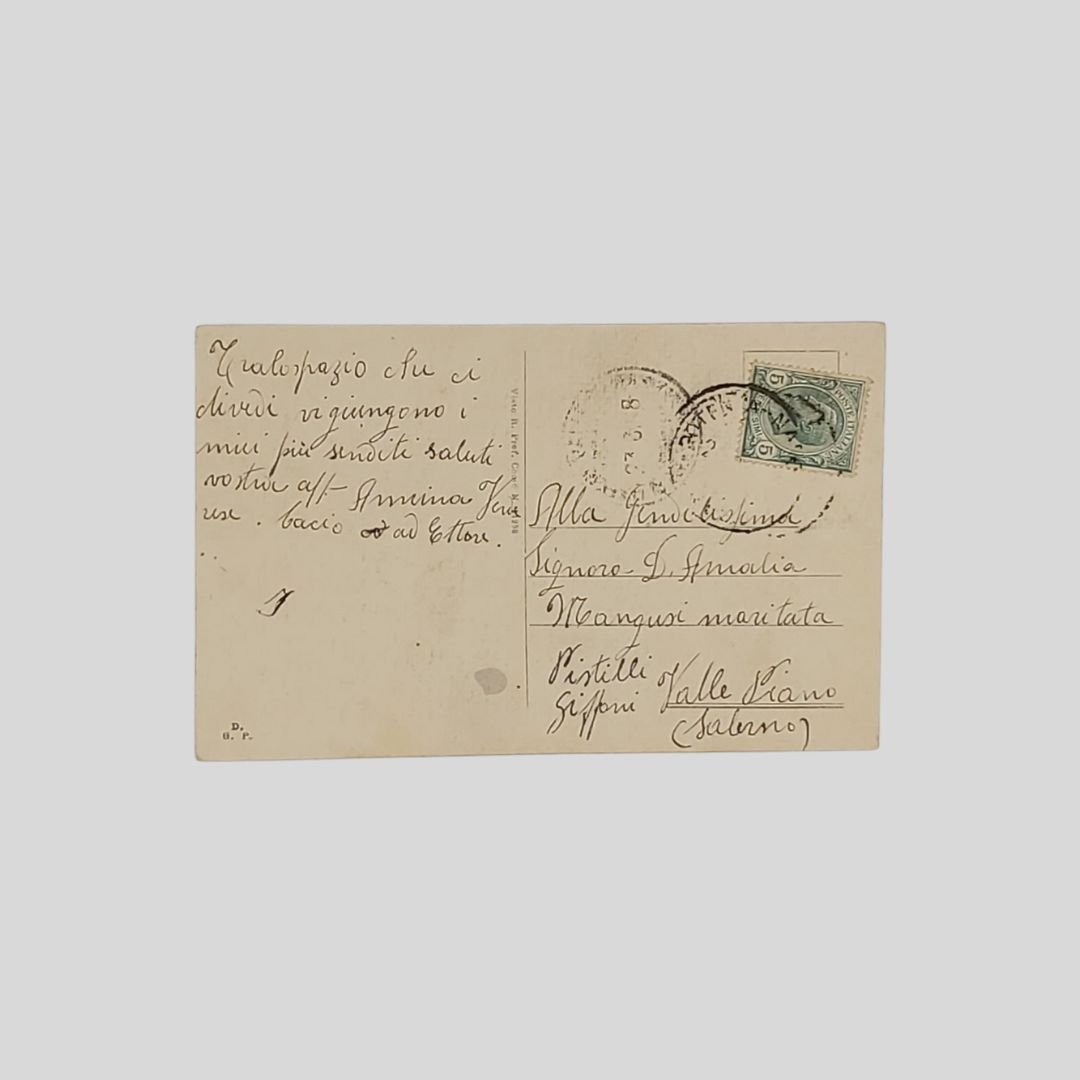 Tralospazio che ci
divedi vi giungono i
miei più senditi saluti
vostra aff-
bacio ad Ettore.
D.
G. P.
Visto R. Pref. Como N.
POSTE ITALIANE
5 5
23.3.
POTENZA-NA
Alla Gendilissima
Signora D. Amalia
Mangusi maritata
Pistilli
Giffoni Valle Piano
(Salerno)